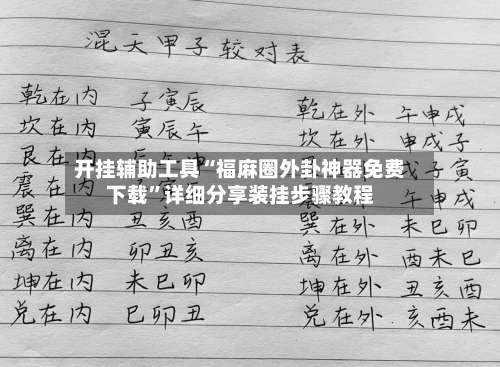 混天甲子较对表
乾在内 子寅辰 乾在外 午申戌
坎在内 寅辰午 坎在外 申戌子
艮在内
开挂辅助工具“福麻圈外卦神器免费
下载”详细分享装挂步骤教程
震在内
巽在内 丑亥酉 巽在外 未巳卯
离在内 卯丑亥 离在外 酉未巳
坤在内 未巳卯 坤在外 丑亥酉
兑在内 巳卯丑 兑在外 亥酉未